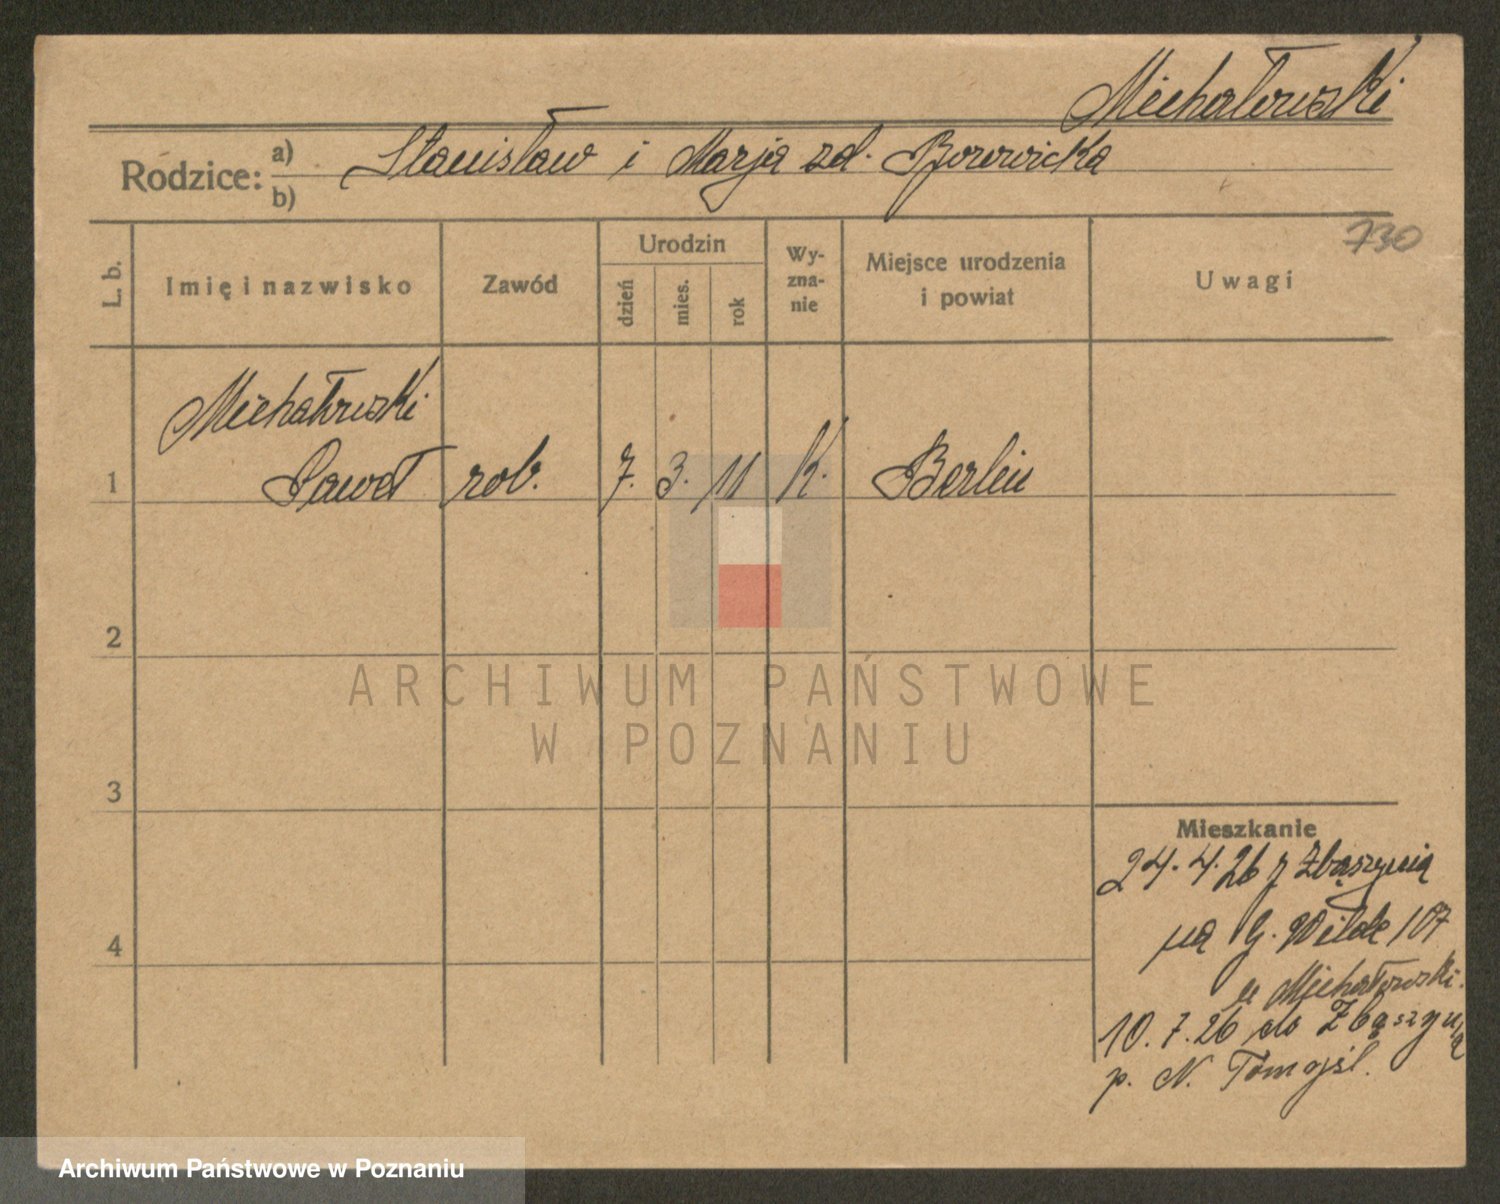 Michałowski
Rodzice: a) b) Stanisław i Marja zd. Borowicka
730
L. b. Imię i nazwisko Zawód Urodzin dzień mies. rok Wy-zna-nie Miejsce urodzenia i powiat Uwagi
Michałowski
1 Paweł rob. 7. 3. 11 K. Berlin
2
ARCHIWUM PAŃSTWOWE
W POZNANIU
3
Mieszkanie
24. 4. 26 z Zbąszynia
na G. Wilde 107
4
u Michałowski.
10. 7. 26 do Zbąszynia
p. N. Tomyśl.
Archiwum Państwowe w Poznaniu